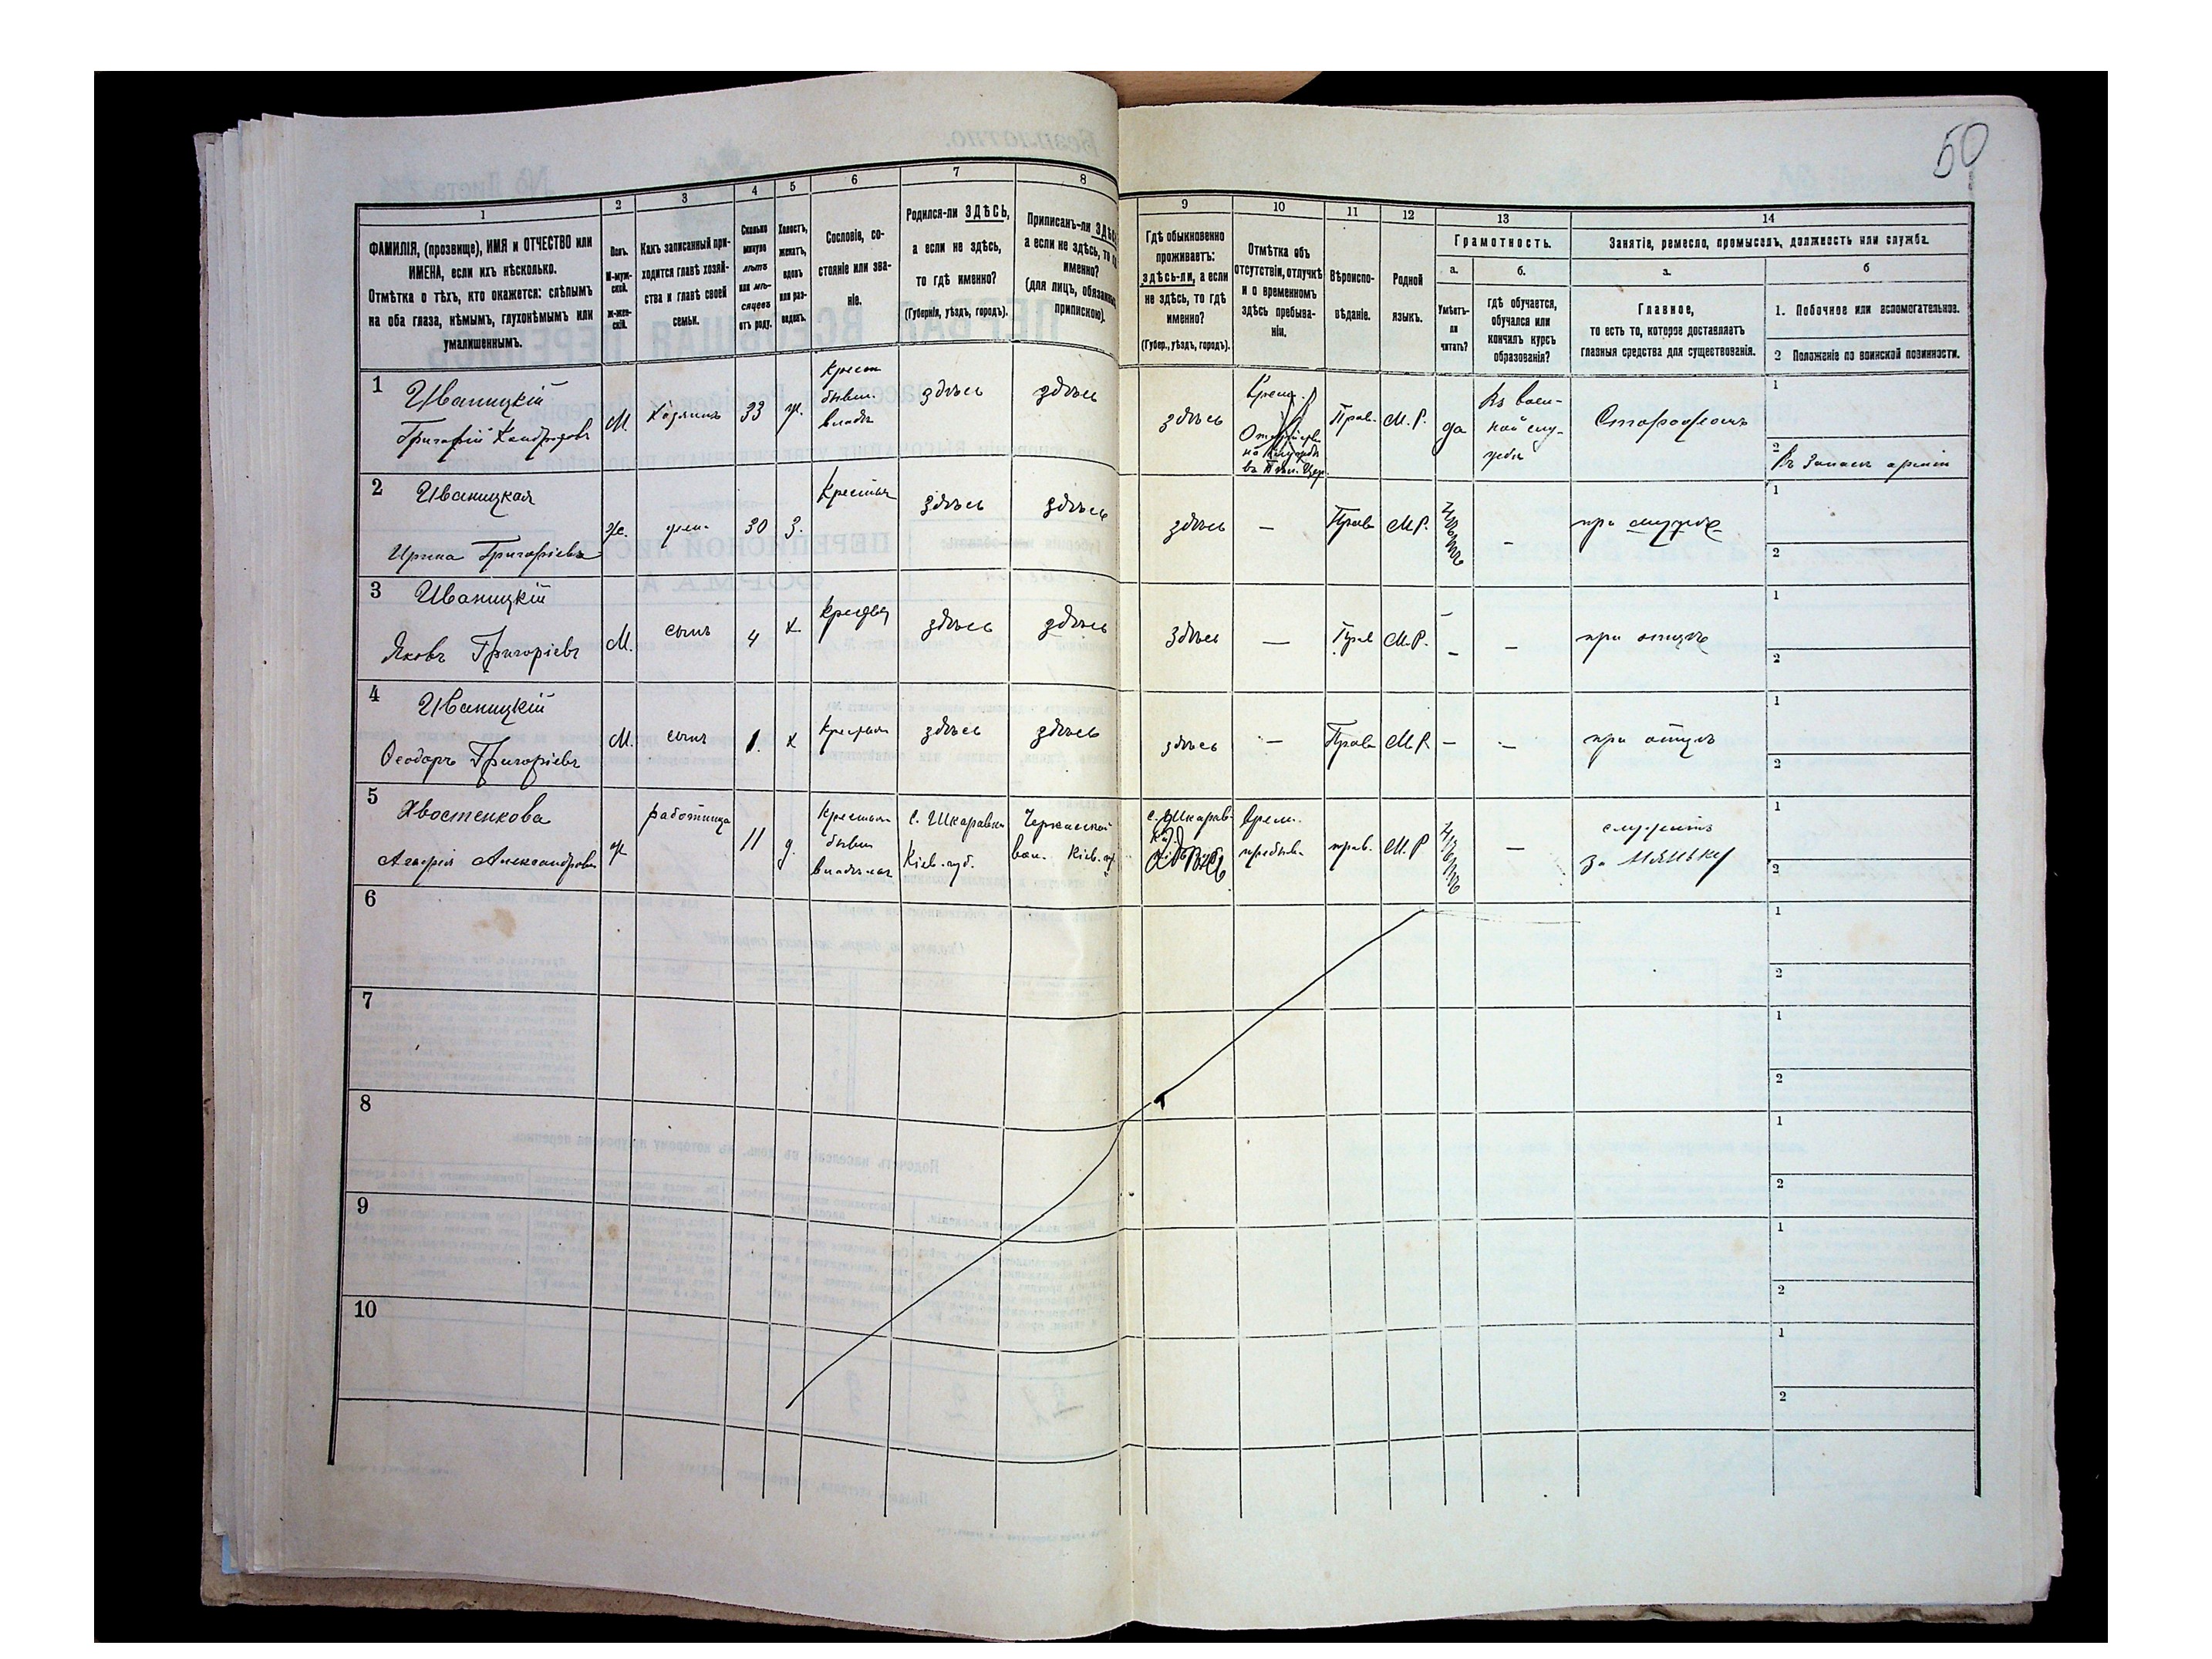 50
1
2
3
4
5
6
7
8
9
10
11
12
13
14
ФАМИЛІЯ, (прозвище), ИМЯ и ОТЧЕСТВО или
ИМЕНА, если ихъ нѣсколько.
Отмѣтка о тѣхъ, кто окажется: слѣпымъ
на оба глаза, нѣмымъ, глухонѣмымъ или
умалишеннымъ.
Полъ.
М-муж-
ской.
Ж-жен-
скій.
Какъ записанный при-
ходится главѣ хозяй-
ства и главѣ своей
семьи.
Сколько
минуло
лѣтъ
или мѣ-
сяцевъ
отъ роду.
Холостъ,
женатъ,
вдовъ
или раз-
веденъ.
Сословіе, со-
стояніе или зва-
ніе.
Родился-ли ЗДѢСЬ,
а если не здѣсь,
то гдѣ именно?
(Губернія, уѣздъ, городъ).
Приписанъ-ли
а если не здѣсь, то
именно?
(для лицъ,
припискою).
Гдѣ обыкновенно
проживаетъ:
здѣсь-ли, а если
не здѣсь, то гдѣ
именно?
(Губер., уѣздъ, городъ).
Отмѣтка объ
отсутствіи, отлучкѣ
и о временномъ
здѣсь пребыва-
ніи.
Вѣроиспо-
вѣданіе.
Родной
языкъ.
Грамотность.
а.
Умѣетъ-
ли
читать?
б.
гдѣ обучается,
обучался или
кончилъ курсъ
образованія?
Занятіе, ремесло, промыселъ, должность или служба.
а.
Главное,
то есть то, которое доставляетъ
главныя средства для существованія.
б
1. Побочное или вспомогательное.
2 Положеніе по воинской повинности.
1
Иваницкій
Григорій
М.
Хозяинъ
33
ж.
Крест
бывш.
владѣ
здѣсь
здѣсь
здѣсь
Прав.
М.Р.
да
Въ воен-
ной слу-
жбѣ
1
2
Въ запасѣ арміи
2
Иваницкая
Ирина Григоріева
ж.
жен.
30
З.
Крестьян
здѣсь
здѣсь
здѣсь
—
Прав
М.Р.
нѣтъ
—
при мужѣ
1
2
3
Иваницкій
Яковъ Григоріевъ
М.
сынъ
4
х.
здѣсь
здѣсь
здѣсь
—
Прав
М.Р.
—
—
при отцѣ
1
2
4
Иваницкій
Ѳеодоръ Григоріевъ
М.
сынъ
1.
х
Крестьян
здѣсь
здѣсь
здѣсь
—
Прав
М.Р.
—
—
при отцѣ
1
2
5
Хвостенкова
Александрова
ж
работница
11
д.
Крестьян
бывш
с. Шкаравки
Кіев. губ.
вол. Кіев. г.
с. Шкарав-
Врем.
пребыв.
прав.
М.Р
нѣтъ
—
служитъ
за няньку
1
2
6
1
2
7
1
2
8
1
2
9
1
2
10
1
2